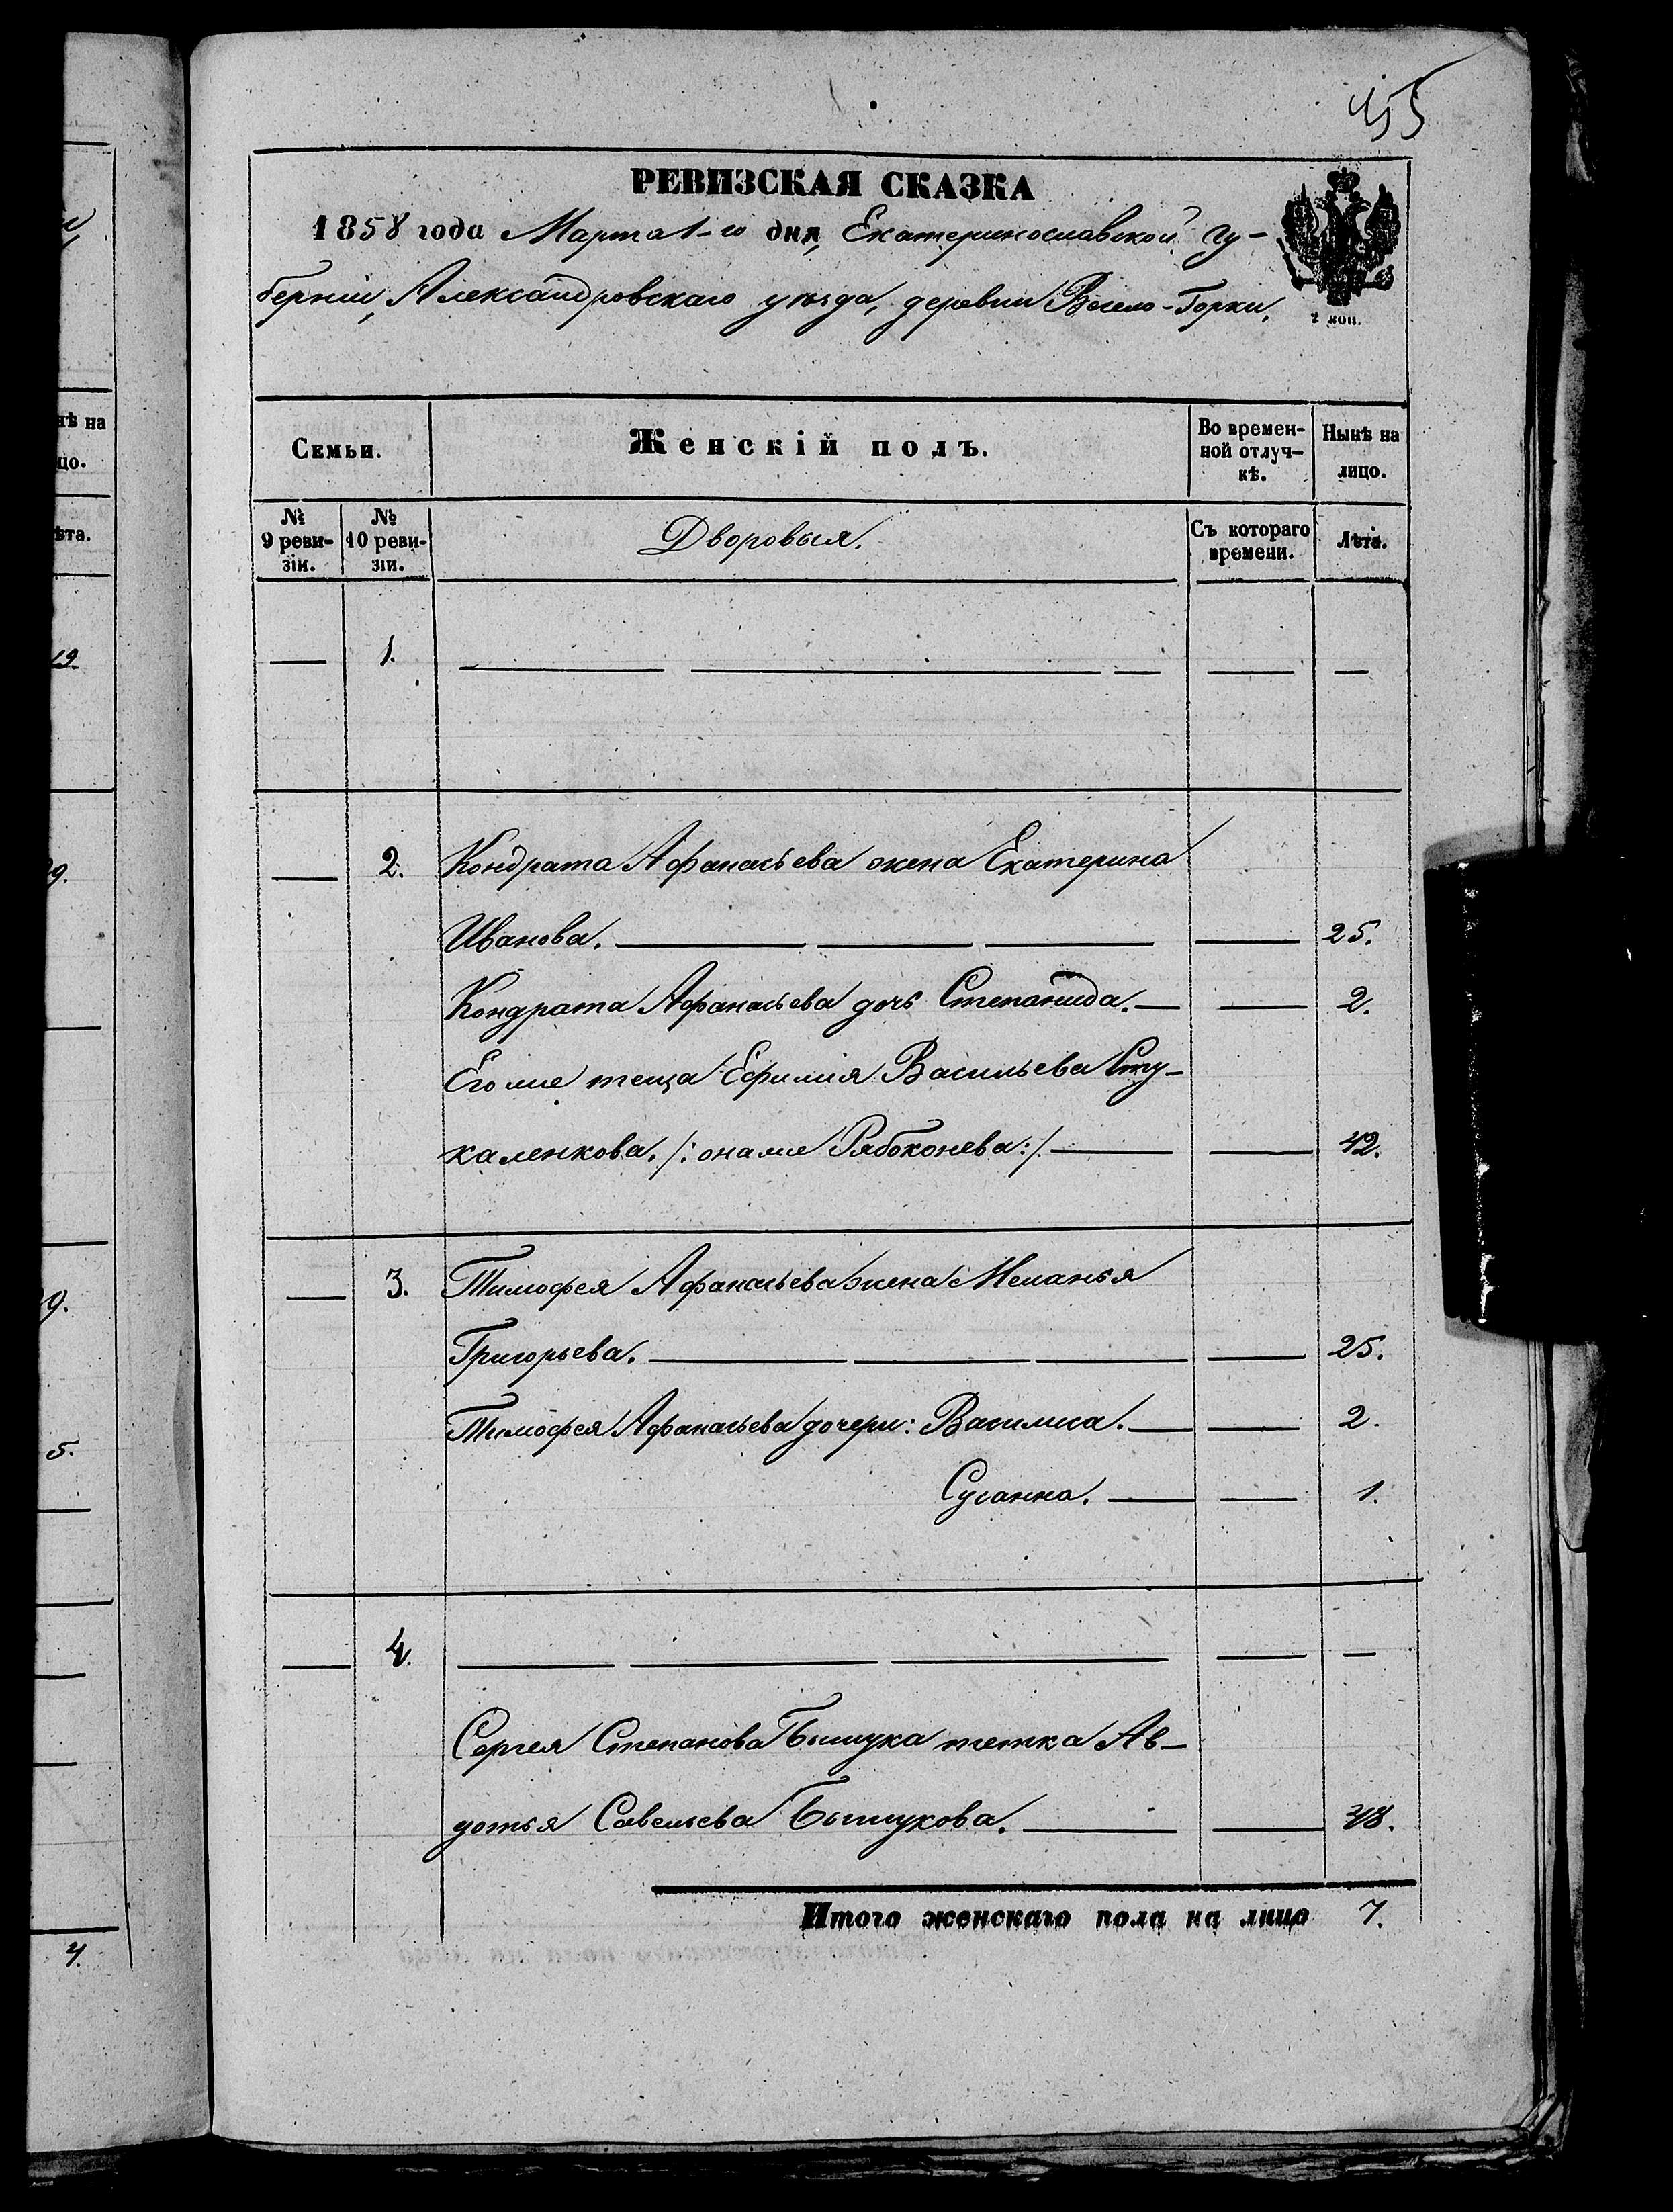 455
РЕВИЗСКАЯ СКАЗКА
1858 года Марта 1-го дня, Екатеринославской гу-
берніи, Александровскаго уѣзда, деревни Весело-Горки,
2 коп.
Семьи. Женскій полъ. Во времен-ной отлуч-кѣ. Нынѣ на лицо.
№ 9 реви-зіи. № 10 реви-зіи. Дворовыя. Съ котораго времени. Лѣта.
— 1. — — — — —
— 2. Кондрата Афанасьева жена Екатерина
Иванова. — — — — 25.
Кондрата Афанасьева дочь Степанида. — — 2.
Его же теща Ефимія Васильева Сту-
каленкова. /: она же Рябоконева :/ — — 42.
— 3. Тимофея Афанасьева жена Меланья
Григорьева. — — — — 25.
Тимофея Афанасьева дочери: Василиса. — — 2.
Сусанна. — — 1.
— 4. — — — — —
Сергея Степанова тетка Ав-
дотья Савельева — — 48.
Итого женскаго пола на лицо 7.
нѣ на
цо.
ѣта.
19.
9.
9.
5.
4.